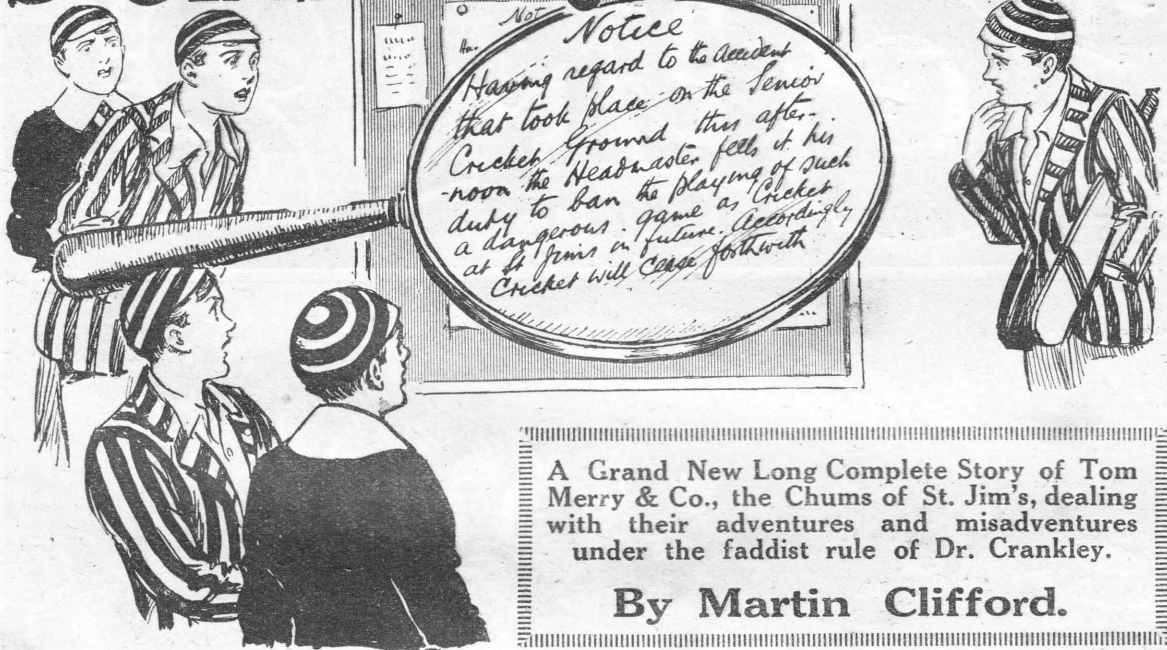 Not
Notice
Having regard to the accident
that took place on the Senior
Cricket Ground this after-
-noon the Headmaster feels it his
duty to ban the playing of such
a dangerous game as Cricket
at St Jim's in future. Accordingly
Cricket will cease forthwith
A Grand New Long Complete Story of Tom
Merry & Co., the Chums of St. Jim's, dealing
with their adventures and misadventures
under the faddist rule of Dr. Crankley.
By Martin Clifford.